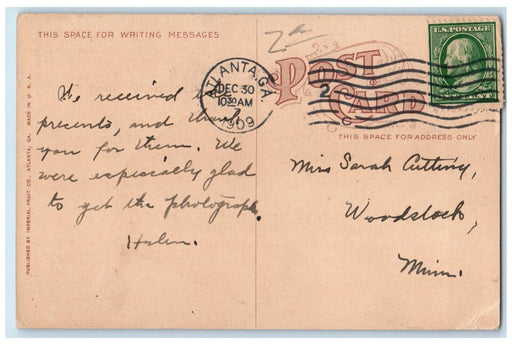 THIS SPACE FOR WRITING MESSAGES
We received
presents, and thank
you for them. We
were especially glad
to get the photograph.
Helen.
PUBLISHED BY IMPERIAL FRUIT CO., ATLANTA, GA. MADE IN U. S. A.
ATLANTA, GA.
DEC 30
10 30 AM
1909
2
POST
CARD
U.S. POSTAGE
THIS SPACE FOR ADDRESS ONLY
Miss Sarah Cutting,
Woodstock,
Minn.